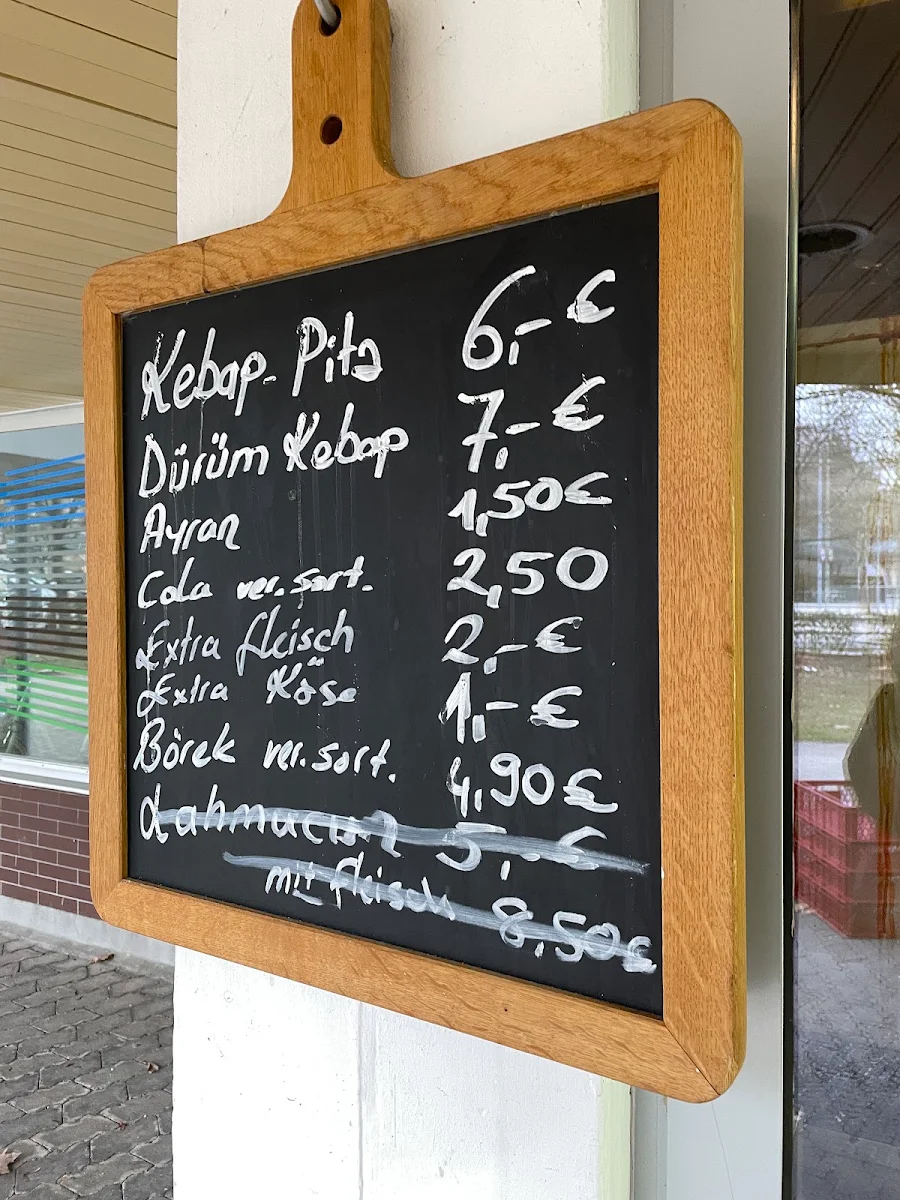 Kebap-Pita 6,-€
Dürüm Kebap 7,-€
Ayran 1,50€
Cola ver. sort. 2,50
Extra fleisch 2,-€
Extra Köse 1,-€
Börek ver. sort. 4,90€
Lahmucun 5,-€
mit fleisch 8,50€